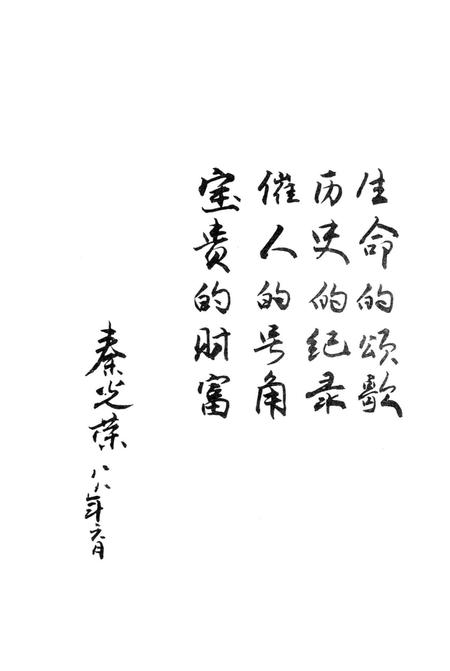 生命的颂歌
历史的纪录
催人的号角
宝贵的财富
秦光荣
八八年六月